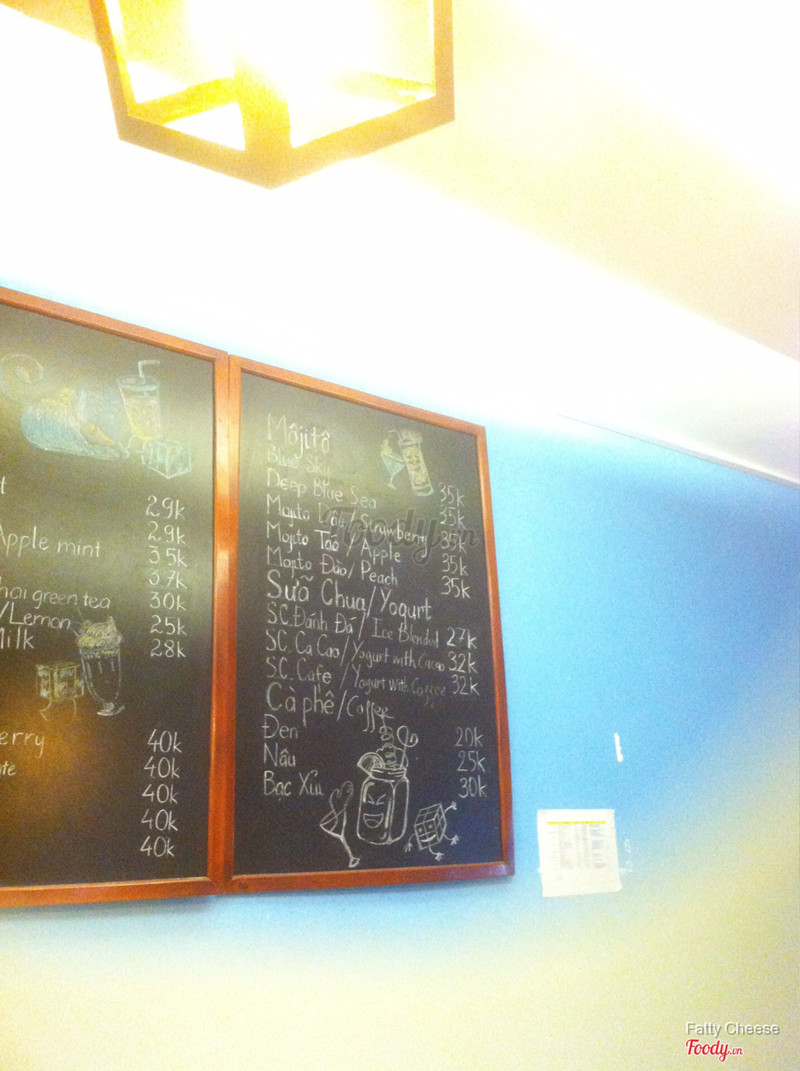 29k
29k
Apple mint 35k
37k
hai green tea 30k
/Lemon 25k
Milk 28k
erry 40k
40k
40k
40k
40k
Mojito
Blue Sky 35k
Deep Blue Sea 35k
Mojito Dâu / Strawberry 35k
Mojito Táo / Apple 35k
Mojito Đào / Peach 35k
Sữa Chua / Yogurt
S.C. Đánh Đá / Ice Blended 27k
S.C. Ca Cao / Yogurt with Cacao 32k
S.C. Cafe / Yogurt with Coffee 32k
Cà phê / Coffee
Đen 20k
Nâu 25k
Bạc Xỉu 30k
Foody.vn
Fatty Cheese
Foody.vn